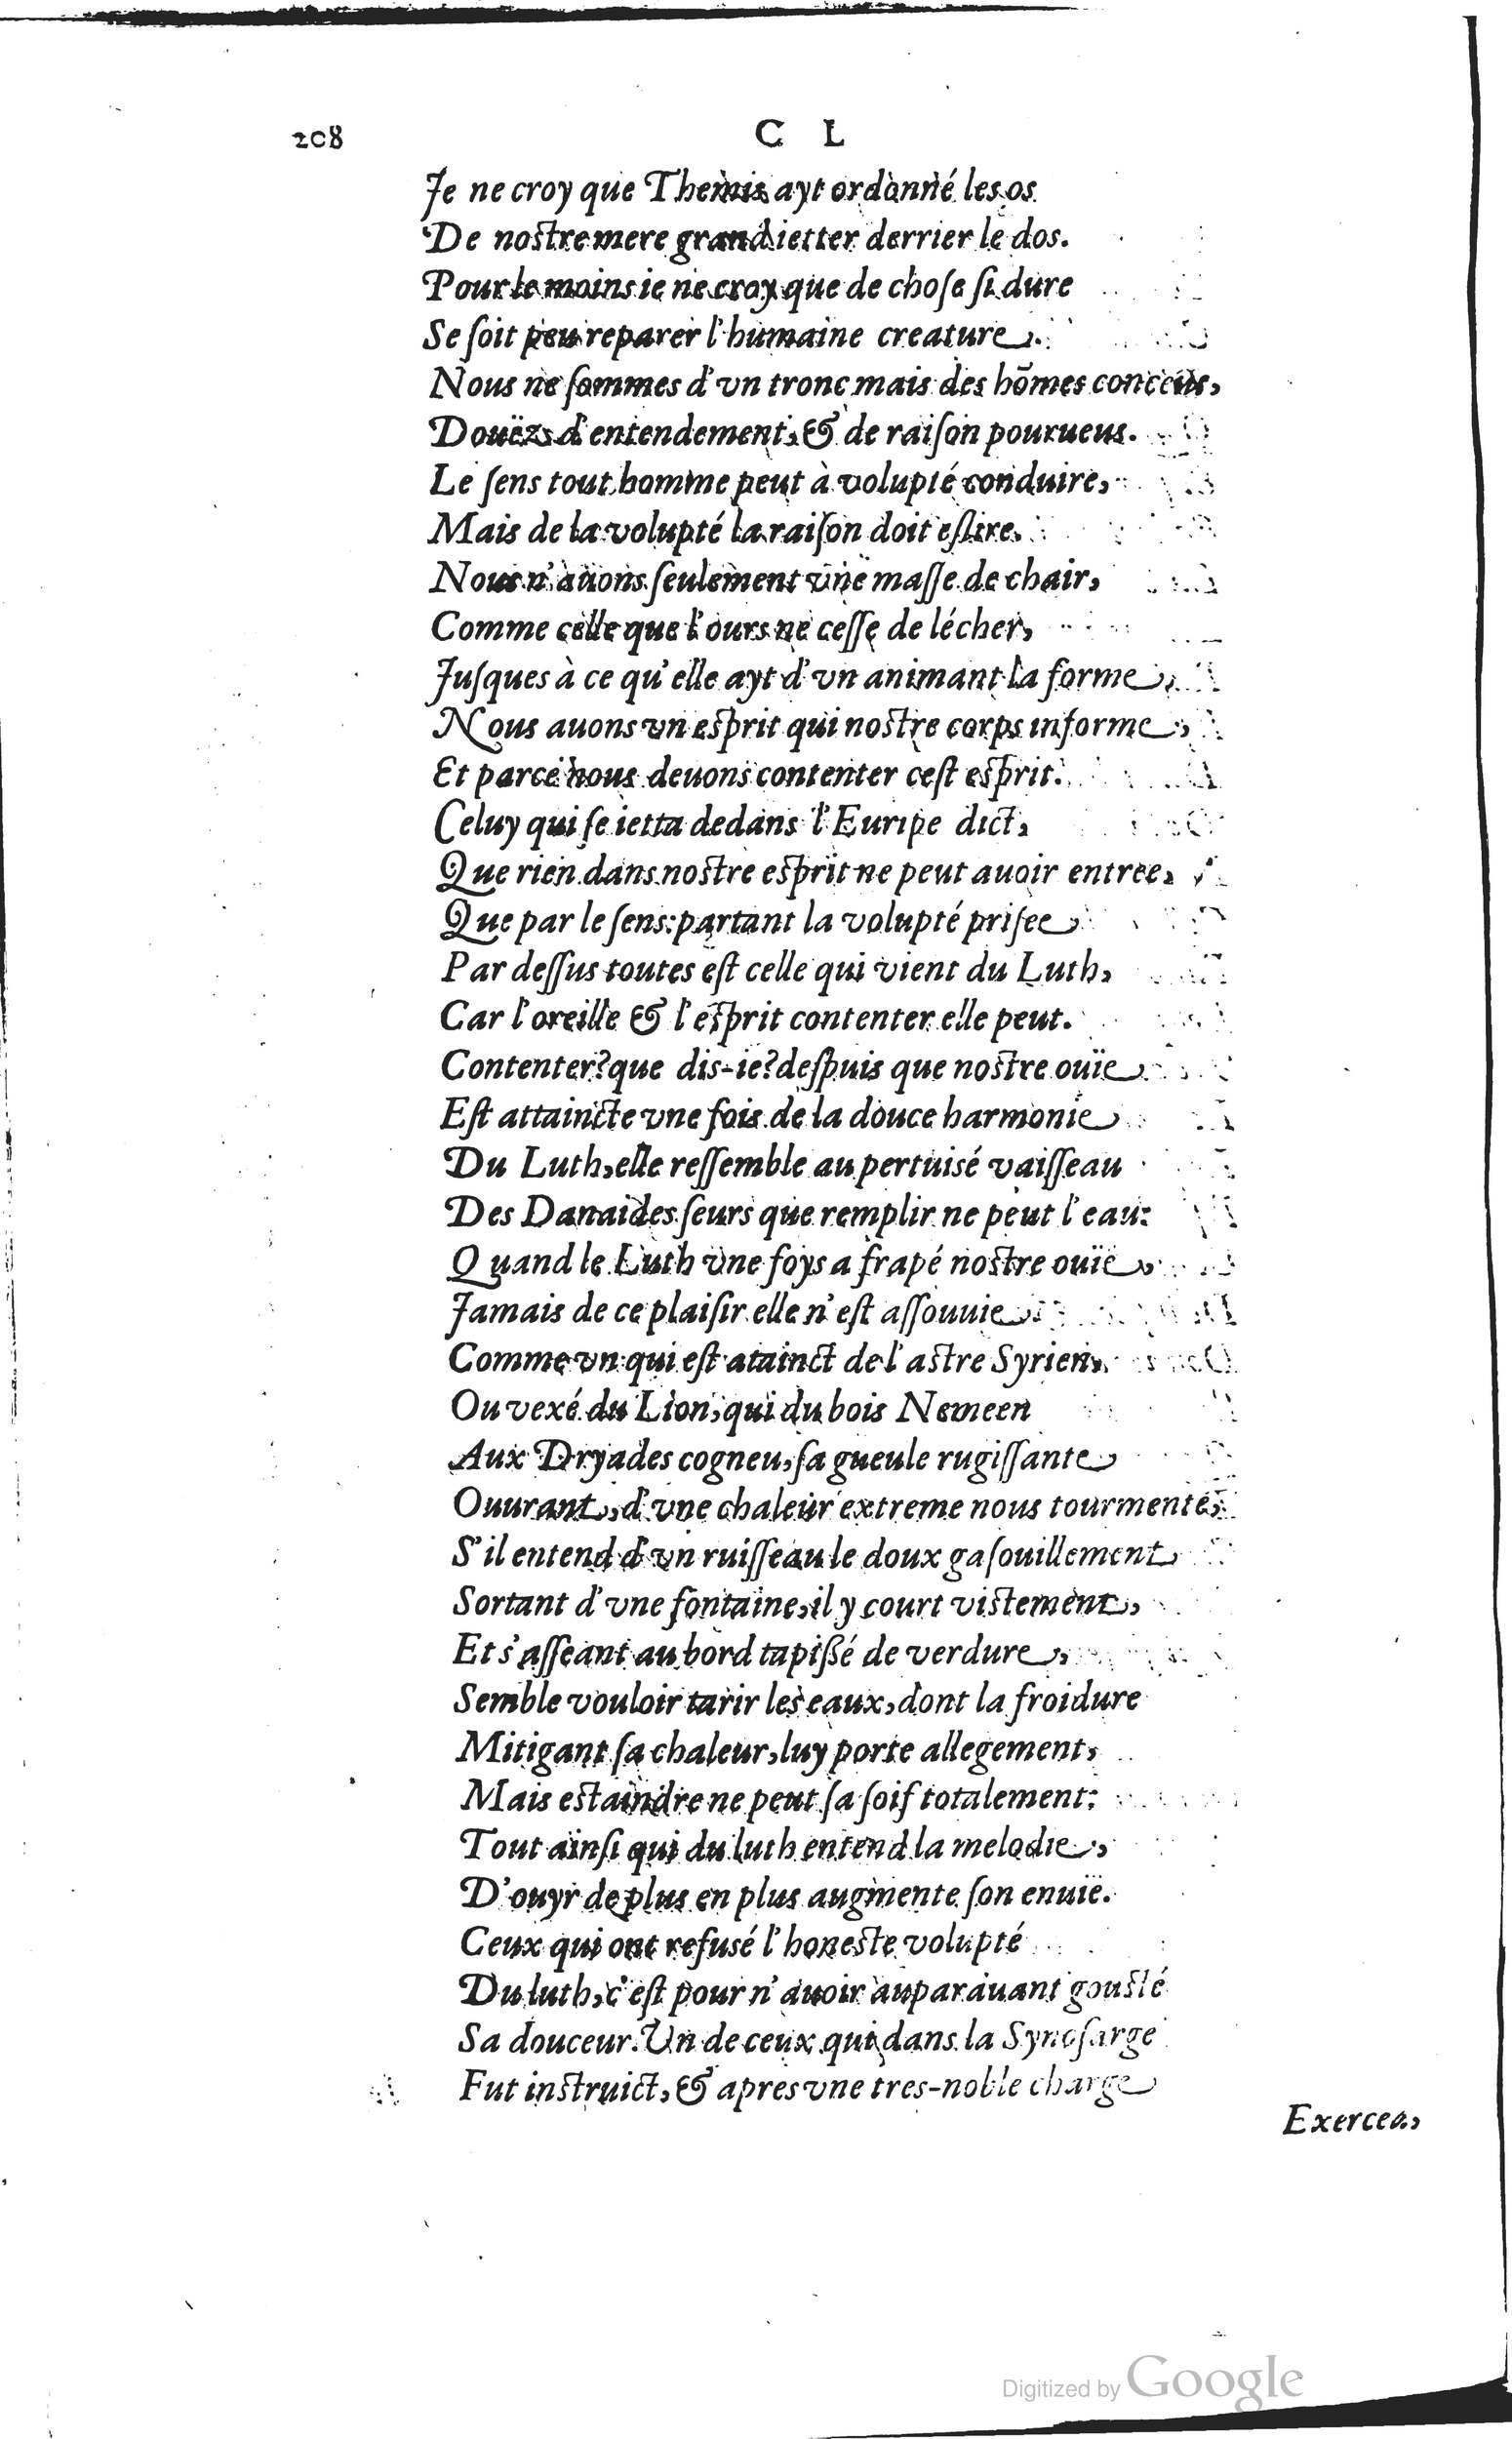 208 C L
Je ne croy que Themis ayt ordonné les os
De nostre mere grand ietter derrier le dos.
Pour le moins ie ne croy que de chose si dure
Se soit peu reparer l'humaine creature.
Nous ne sommes d'vn tronc mais des hõmes conceus,
Douëz d'entendement, & de raison pourueus.
Le sens tout homme peut à volupté conduire,
Mais de la volupté la raison doit eslire.
Nous n'auons seulement vne masse de chair,
Comme celle que l'ours ne cesse de lécher,
Jusques à ce qu'elle ayt d'vn animant la forme,
Nous auons vn esprit qui nostre corps informe,
Et parce nous deuons contenter cest esprit.
Celuy qui se ietta dedans l'Euripe dict,
Que rien dans nostre esprit ne peut auoir entree,
Que par le sens: partant la volupté prisee
Par dessus toutes est celle qui vient du Luth,
Car l'oreille & l'esprit contenter elle peut.
Contenter? que dis-ie? despuis que nostre ouïe
Est attaincte vne fois de la douce harmonie
Du Luth, elle ressemble au pertuisé vaisseau
Des Danaides seurs que remplir ne peut l'eau:
Quand le Luth vne foys a frapé nostre ouïe,
Jamais de ce plaisir elle n'est assouuie
Comme vn qui est atainct de l'astre Syrien,
Ou vexé du Lion, qui du bois Nemeen
Aux Dryades cogneu, sa gueule rugissante
Ouurant, d'vne chaleur extreme nous tourmente,
S'il entend d'vn ruisseau le doux gasouillement
Sortant d'vne fontaine, il y court vistement,
Et s'asseant au bord tapißé de verdure,
Semble vouloir tarir les eaux, dont la froidure
Mitigant sa chaleur, luy porte allegement,
Mais estaindre ne peut sa soif totalement:
Tout ainsi qui du luth entend la melodie,
D'ouyr de plus en plus augmente son enuïe.
Ceux qui ont refusé l'honeste volupté
Du luth, c'est pour n'auoir auparauant gousté
Sa douceur. Un de ceux qui dans la Synosarge
Fut instruict, & apres vne tres-noble charge
Exercea,
Digitized by Google